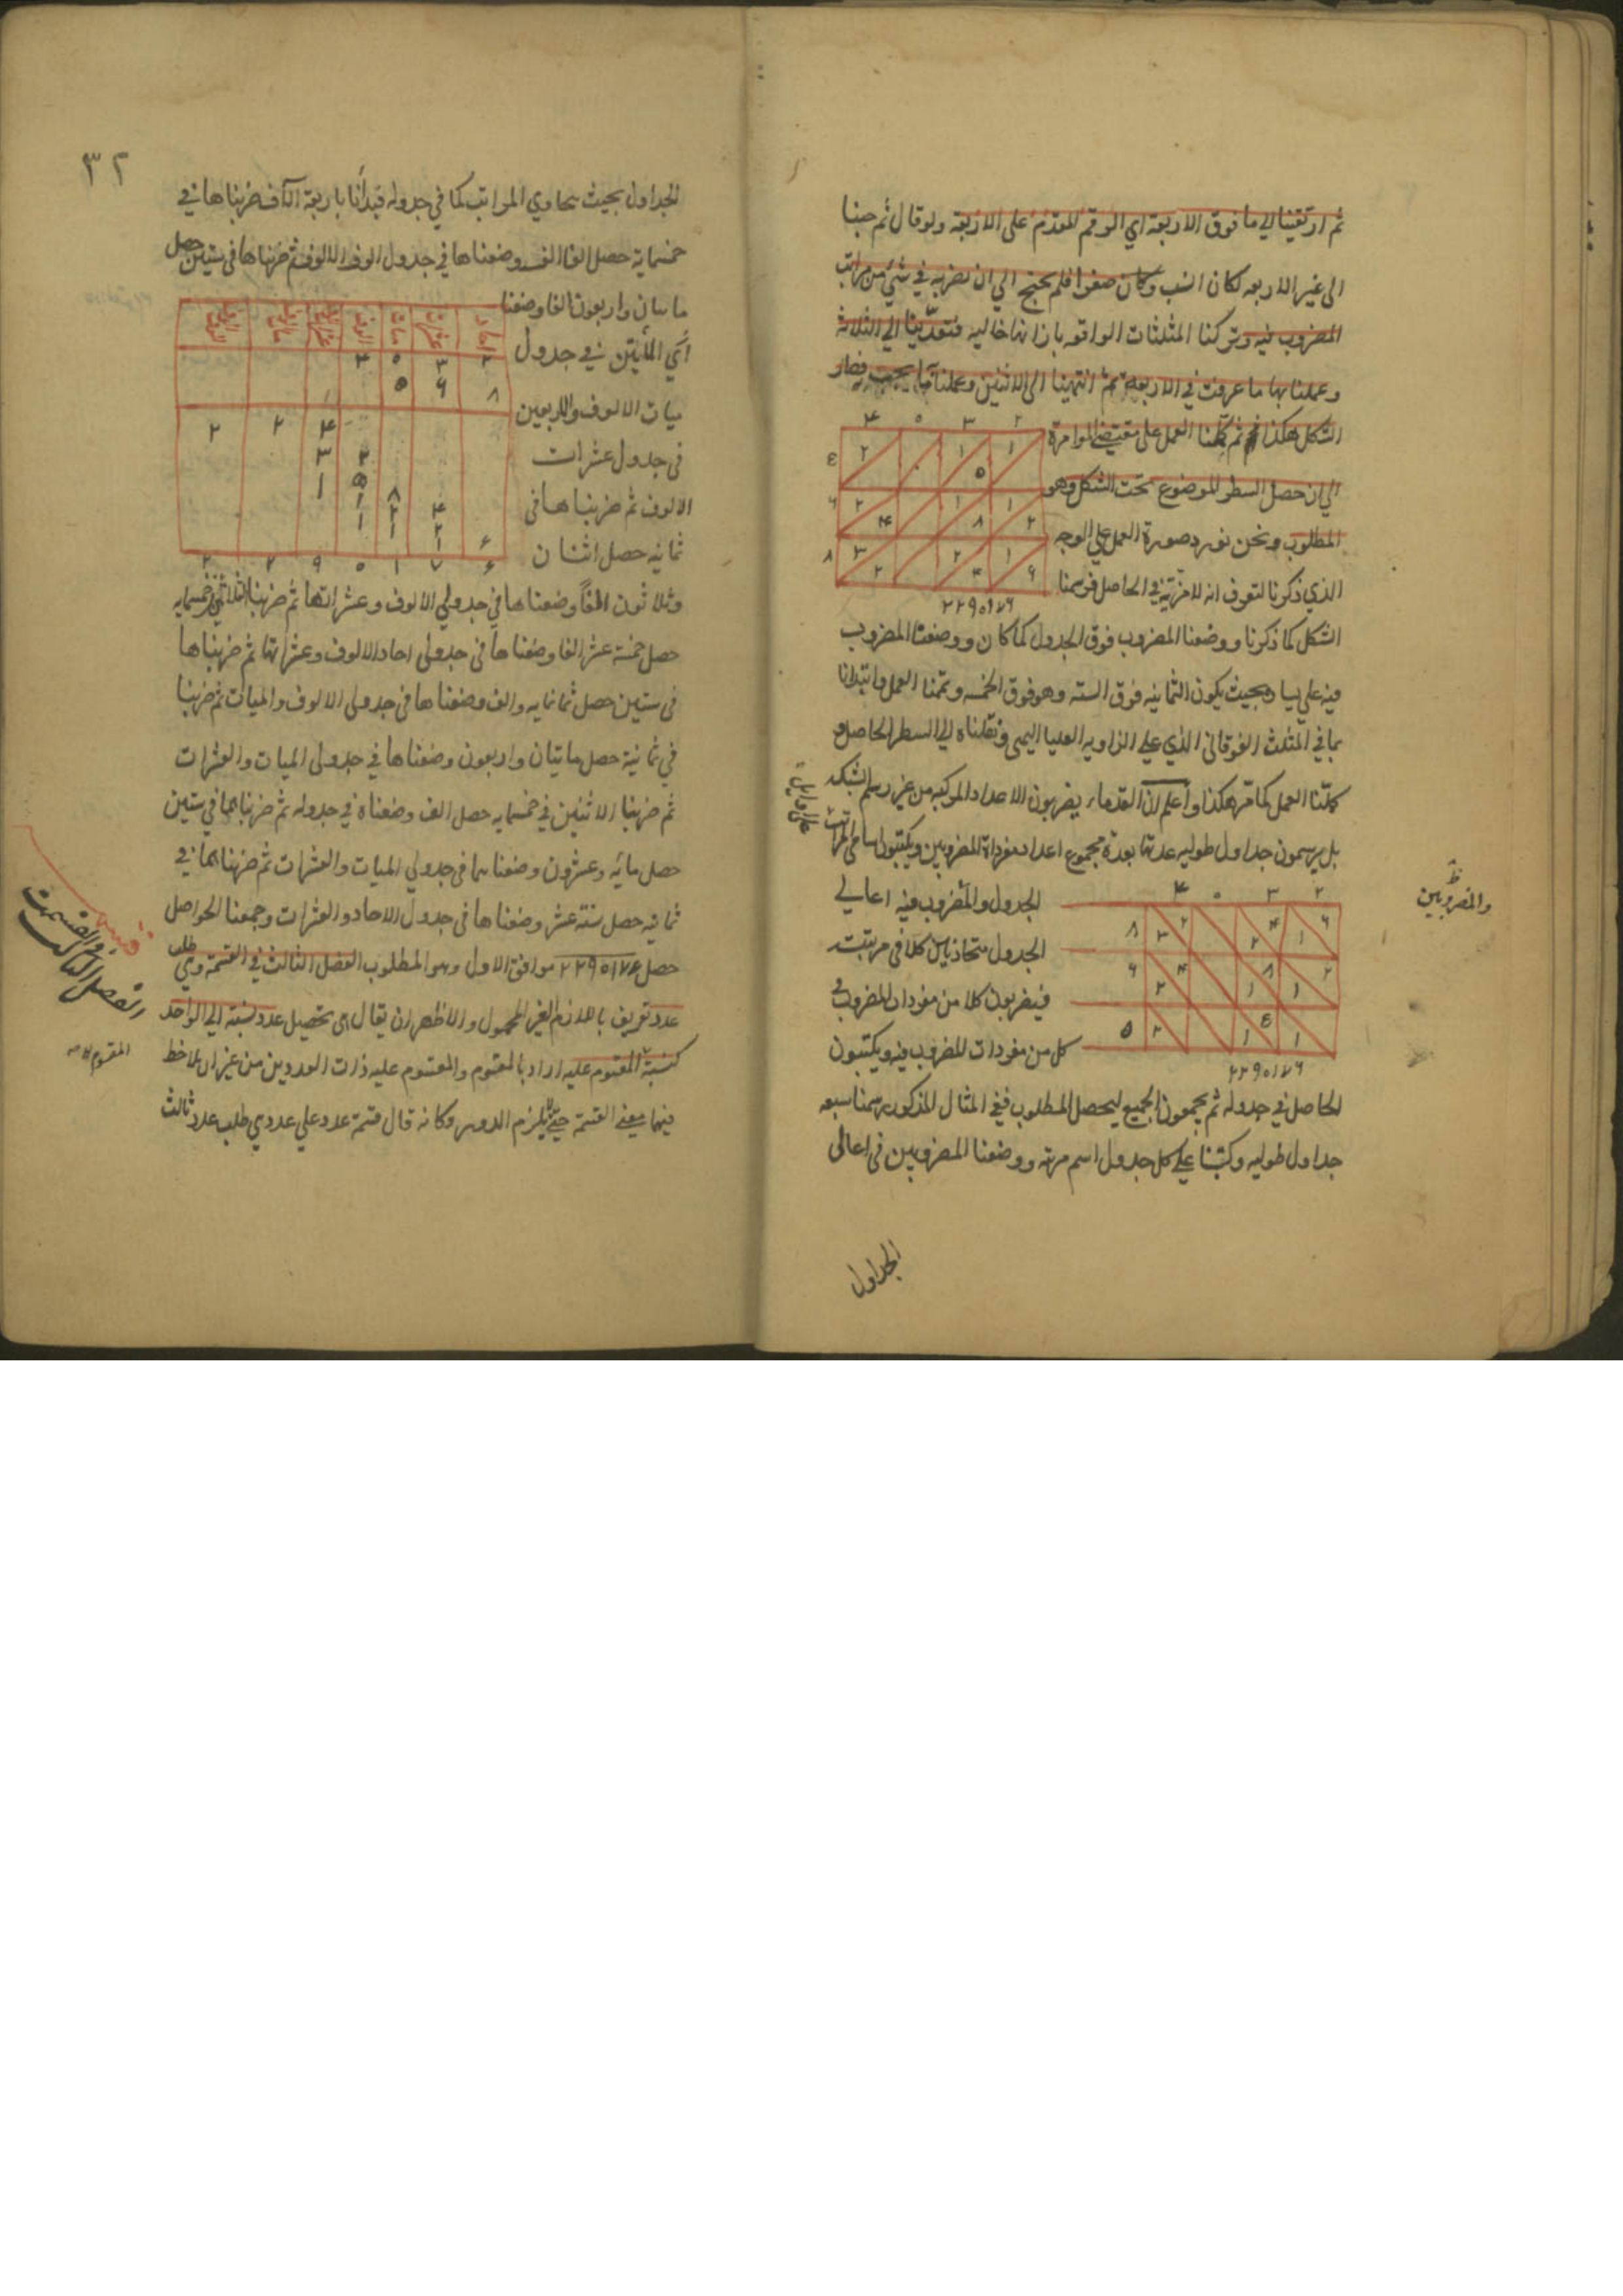 ثم ارتقينا الي ما فوق الاربعة اي الرقم المقدم على الاربعة ولو قال ثم جئنا
الى غير الاربعه لكان انسب وكان صفرا فلم يحتج الي ان نضربه في شئ من مراتب
المضروب فيه وتركنا المثلثات الواقعه بازائها خاليه فتعدينا الي الثلاثة
وعملنا بها ما عرفت في الاربعة ثم انتهينا الى الاثنين وعملنا ما يجب فصار
الشكل هكذا ثم تممنا العمل على مقتضى المؤامرة
الي ان حصل السطر الموضوع تحت الشكل وهو
المطلوب ونحن نورد صورة العمل علي الوجه
الذي ذكرنا لتعرف انه لا مزية في الحاصل فرسمنا
۴ ٠ ۳ ۲
۲ ٠ ۱ ٥ ۱
٦ ۲ ۴ ۱ ۸ ۱ ۲
۸ ۳ ۲ ۲ ۴ ۱ ٦
۲۲۹٠۱۷٦
الشكل كما ذكرنا ووضعنا المضروب فوق الجدول كما كان ووضعنا المضروب
فيه علي يسا بحيث يكون الثمانيه فوق السته وهو فوق الخمسه وتممنا العمل وابتدانا
بما في المثلث الفوقاني الذي علي الزاويه العليا اليمنى ونقلناه الي السطر الحاصل و
كملنا العمل كما مر هكذا واعلم ان القدماء يضربون الاعداد المركبه من غير رسم الشبكه
بل يرسمون جداول طوليه عدتها بعدة مجموع اعداد مفرداة المضروبين ويكتبون اسامي المراتب
والمضروبين
الجدول والمضروب فيه اعالي
الجدول متحاذيين كلا في مرتبته
فيضربون كلا من مفردات المضروب في
كل من مفردات المضروب فيه ويكتبون
۴ ٠ ۳ ۲
۸ ۳ ۲ ۲ ۴ ۱ ٦
٦ ۲ ۴ ۱ ۸ ۱ ۲
٥ ۲ ۱ ٥ ۱
۲۲۹٠۱۷٦
الحاصل في جدوله ثم يجمعون الجميع ليحصل المطلوب ففي المثال المذكور رسمنا سبعه
جداول طوليه وكتبنا علي كل جدول اسم مرتبه ووضعنا المضروبين في اعالى
الجداول
۳۲
الجداول بحيث يحاوي المراتب كما في جدوله فبدأنا باربعة الاف ضربناها في
خمسماية حصل الفا الف وضعناها في جدول الوف الالوف ثم ضربناها في ستين حصل
مايتان واربعون الفا وضعنا
اي المأتين في جدول
ميات الالوف والاربعين
فى جدول عشرات
الالوف ثم ضربناها في
ثمانيه حصل اثنان
احاد عشرات مئات الوف
۲ ۳ ٠ ۴
۸ ٦ ٥
۲ ۲ ۴
۳ ۲
۱ ٥ ۸
۱ ۲ ۴
۱ ۱ ۲
۱ ٦
۲ ۲ ۹ ٠ ۱ ۷ ٦
وثلاثون الفاً وضعناها في جدولي الالوف وعشراتها ثم ضربنا الثلاثين في خمسمايه
حصل خمسة عشر الفا وضعناها في جدولى احاد الالوف وعشراتها ثم ضربناها
في ستين حصل ثمانمايه والف وضعناها في جدولى الالوف والميات ثم ضربنا
في ثمانية حصل مايتان واربعون وضعناها في جدولى الميات والعشرات
ثم ضربنا الاثنين في خمسمايه حصل الف وضعناه في جدوله ثم ضربناهما في ستين
حصل مائه وعشرون وضعناهما في جدولي الميات والعشرات ثم ضربناهما في
ثمانيه حصل ستة عشر وضعناها في جدول الاحاد والعشرات وجمعنا الحواصل
حصل ۲۲۹٠۱۷٦ موافق الاول وهو المطلوب الفصل الثالث في القسمة وهي طلب
عدد تعريف باللازم الغير المحمول والاظهر ان يقال هى تحصيل عدد نسبته الي الواحد
كنسبة المقسوم عليه اراد بالمقسوم والمقسوم عليه ذات العددين من غير ان يلاحظ
فيهما معنى القسمة حتى يلزم الدور وكانه قال قسمة عدد علي عدد هي طلب عدد ثالث
الفصل الثالث في القسمت
المقسوم